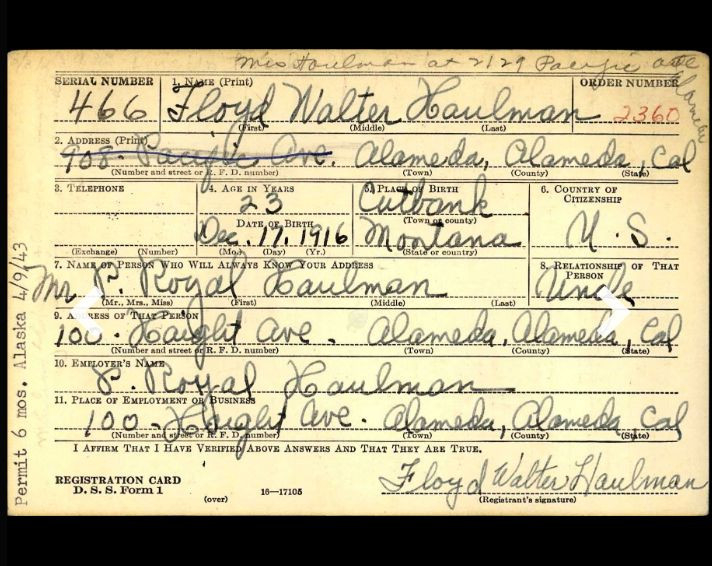 Mrs Haulman at 2129 Pacific ave
Alameda
SERIAL NUMBER 1. NAME (Print) ORDER NUMBER
466 Floyd Walter Haulman 2360
(First) (Middle) (Last)
2. ADDRESS (Print)
908- Pacific Ave. Alameda, Alameda, Cal
(Number and street or R. F. D. number) (Town) (County) (State)
3. TELEPHONE 4. AGE IN YEARS 5. PLACE OF BIRTH 6. COUNTRY OF
CITIZENSHIP
23 Cutbank
(Town or county)
DATE OF BIRTH
Dec. 17. 1916 Montana U. S.
(Exchange) (Number) (Mo.) (Day) (Yr.) (State or country)
7. NAME OF PERSON WHO WILL ALWAYS KNOW YOUR ADDRESS 8. RELATIONSHIP OF THAT
PERSON
Mr. Royal Haulman Uncle
(Mr., Mrs., Miss) (First) (Middle) (Last)
9. ADDRESS OF THAT PERSON
100- Haight Ave. Alameda, Alameda, Cal
(Number and street or R. F. D. number) (Town) (County) (State)
10. EMPLOYER'S NAME
Royal Haulman
11. PLACE OF EMPLOYMENT OR BUSINESS
100- Haight Ave. Alameda, Alameda, Cal
(Number and street or R. F. D. number) (Town) (County) (State)
I AFFIRM THAT I HAVE VERIFIED ABOVE ANSWERS AND THAT THEY ARE TRUE.
REGISTRATION CARD
D. S. S. Form 1
(over) 16—17105
Floyd Walter Haulman
(Registrant's signature)
Permit 6 mos. Alaska 4/9/43